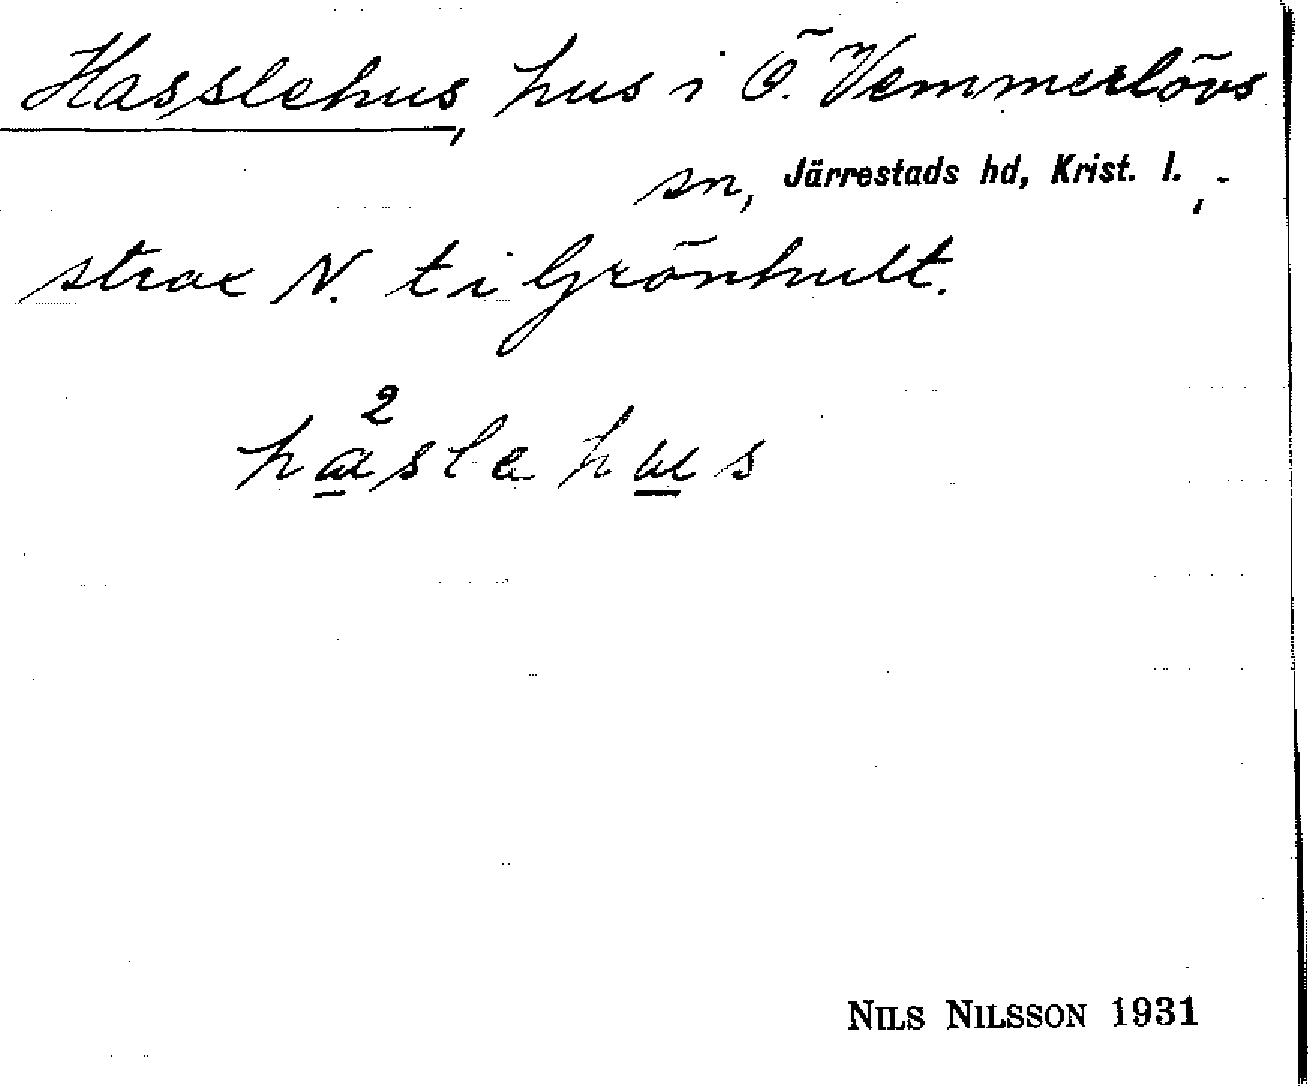 Hasslehus, hus i Ö. Vemmerlövs
sn, Järrestads hd, Krist. l., -
strax N. t i Grönhult.
NILS NILSSON 1931